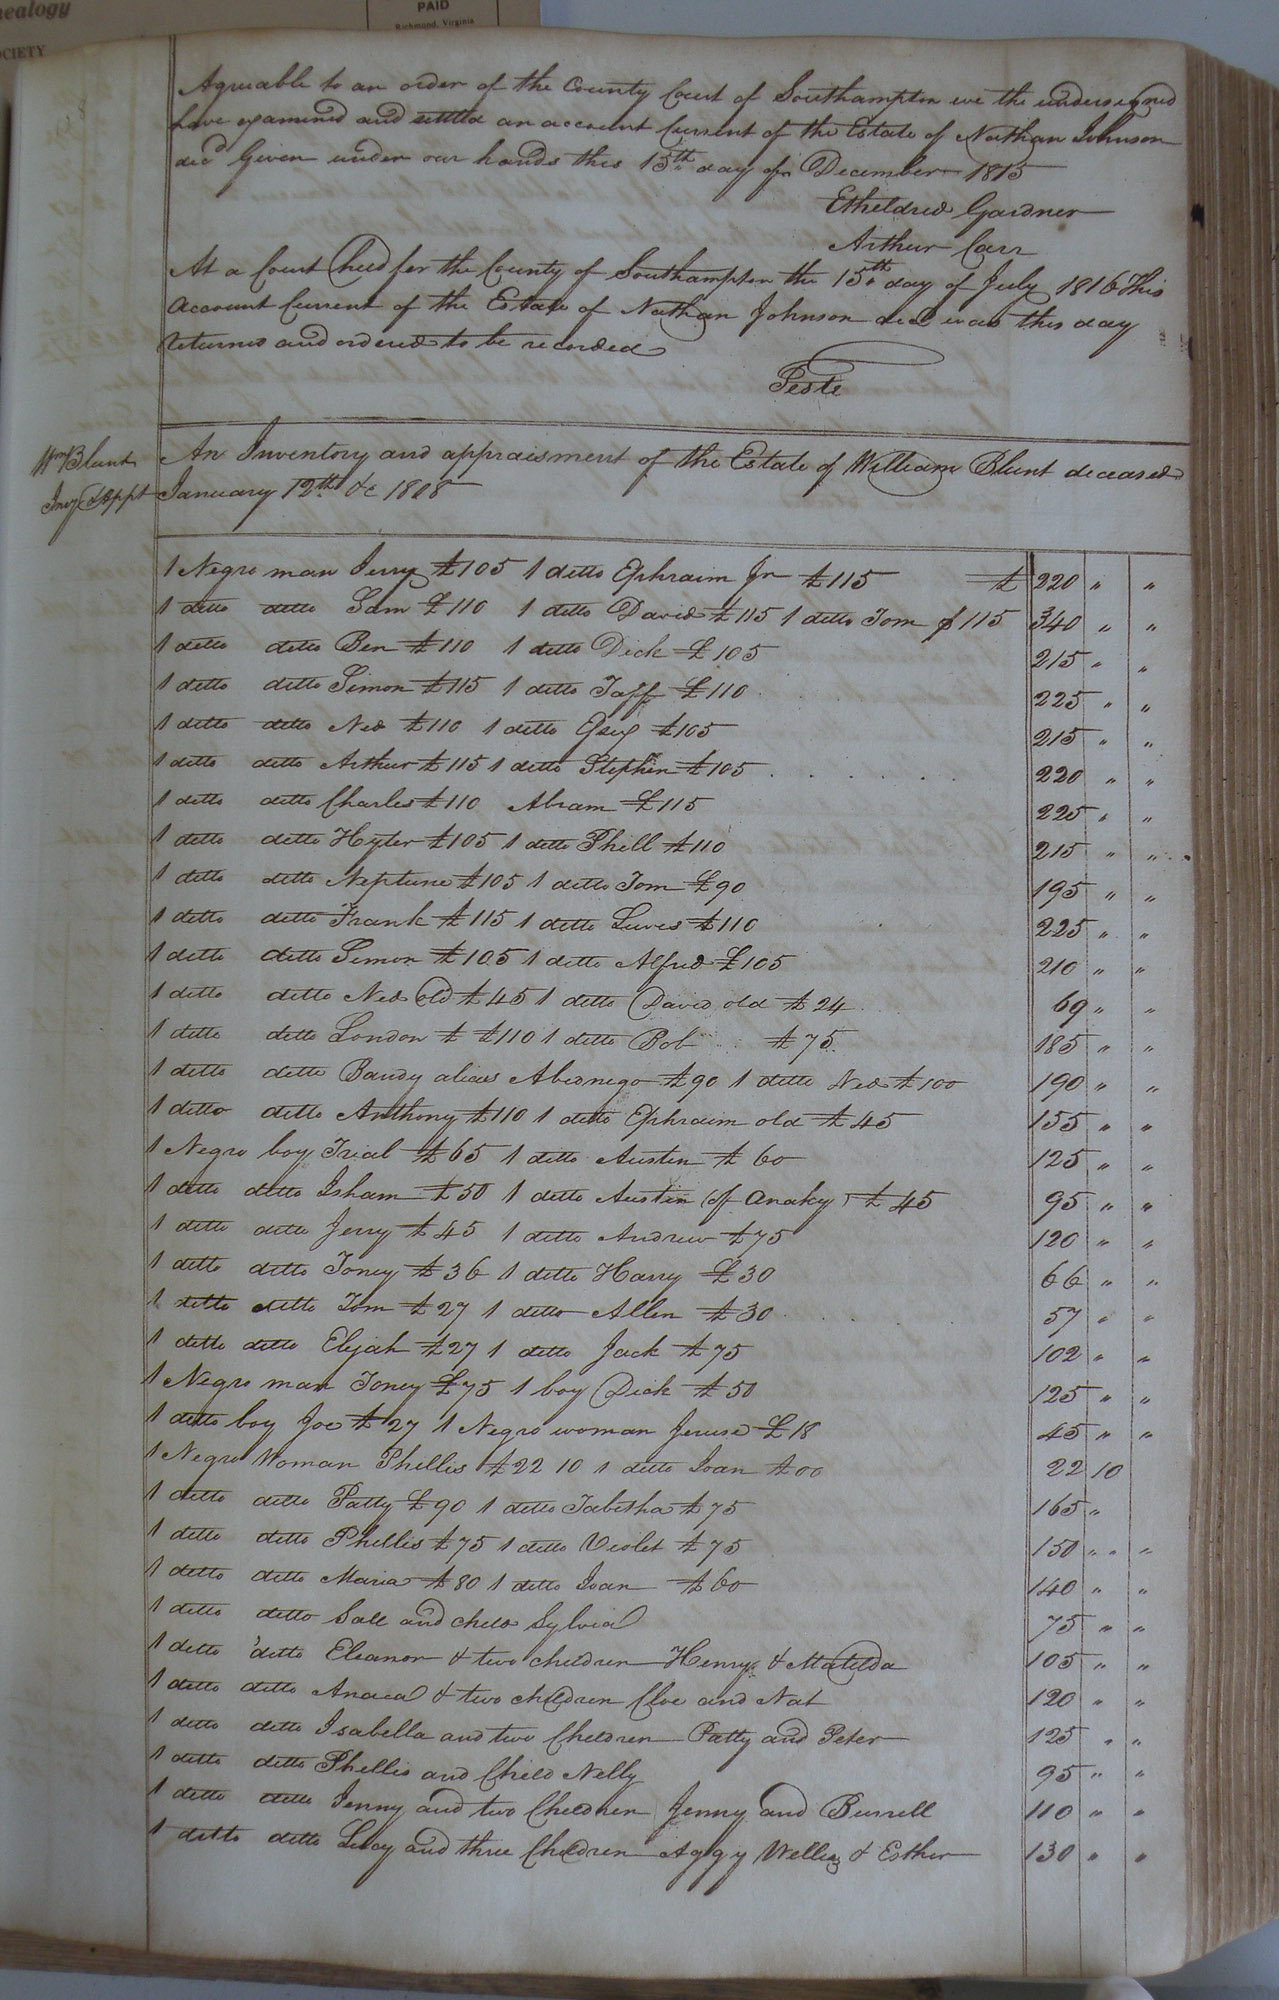 nealogy
OCIETY
PAID
Richmond, Virginia
Agreeable to an order of the County Court of Southampton we the undersigned
have examined and settled an account Current of the Estate of Nathan Johnson
decd Given under our hands this 15th day of December 1815
Etheldred Gardner
Arthur Carr
At a Court held for the County of Southampton the 15th day of July 1816 This
Account Current of the Estate of Nathan Johnson decd was this day
returned and ordered to be recorded
Teste
Wm Blunt
Invy & Appt
An Inventory and appraisment of the Estate of William Blunt deceased
January 12th &c 1808
1 Negro man Jerry £105 1 ditto Ephraim Jr £115 £ 220 " "
1 ditto ditto Sam £110 1 ditto David £115 1 ditto Tom £115 340 " "
1 ditto ditto Ben £110 1 ditto Dick £105 215 " "
1 ditto ditto Simon £115 1 ditto Taff £110 225 " "
1 ditto ditto Ned £110 1 ditto £105 215 " "
1 ditto ditto Arthur £115 1 ditto Stephen £105 220 " "
1 ditto ditto Charles £110 Abram £115 225 " "
1 ditto ditto Hyter £105 1 ditto Phill £110 215 " "
1 ditto ditto Neptune £105 1 ditto Tom £90 195 " "
1 ditto ditto Frank £115 1 ditto Lewis £110 225 " "
1 ditto ditto Simon £105 1 ditto Alfred £105 210 " "
1 ditto ditto Ned old £45 1 ditto David old £24 69 " "
1 ditto ditto London £ £110 1 ditto Bob £75 185 " "
1 ditto ditto Bandy alias Abednego £90 1 ditto Ned £100 190 " "
1 ditto ditto Anthony £110 1 ditto Ephraim old £45 155 " "
1 Negro boy Trial £65 1 ditto Austin £60 125 " "
1 ditto ditto Isham £50 1 ditto Austin (of Anaky) £45 95 " "
1 ditto ditto Jerry £45 1 ditto Andrew £75 120 " "
1 ditto ditto Toney £36 1 ditto Harry £30 66 " "
1 ditto ditto Tom £27 1 ditto Allen £30 57 " "
1 ditto ditto Elijah £27 1 ditto Jack £75 102 " "
1 Negro man Toney £75 1 boy Dick £50 125 " "
1 ditto boy Joe £27 1 Negro woman £18 45 " "
1 Negro Woman Phillis £22 10 1 ditto Joan £00 22 10
1 ditto ditto Patty £90 1 ditto Tabitha £75 165 "
1 ditto ditto Phillis £75 1 ditto Violet £75 150 " "
1 ditto ditto Maria £80 1 ditto Joan £60 140 " "
1 ditto ditto Sall and child Sylvia 75 " "
1 ditto ditto Eleanor & two children Henry & Matilda 105 " "
1 ditto ditto & two children Cloe and Nat 120 " "
1 ditto ditto Isabella and two Children Patty and Peter 125 " "
1 ditto ditto Phillis and Child Nelly 95 " "
1 ditto ditto Jenny and two Children Jenny and Burrell 110 " "
1 ditto ditto Lucy and three Children Aggy & Esther 130 " "